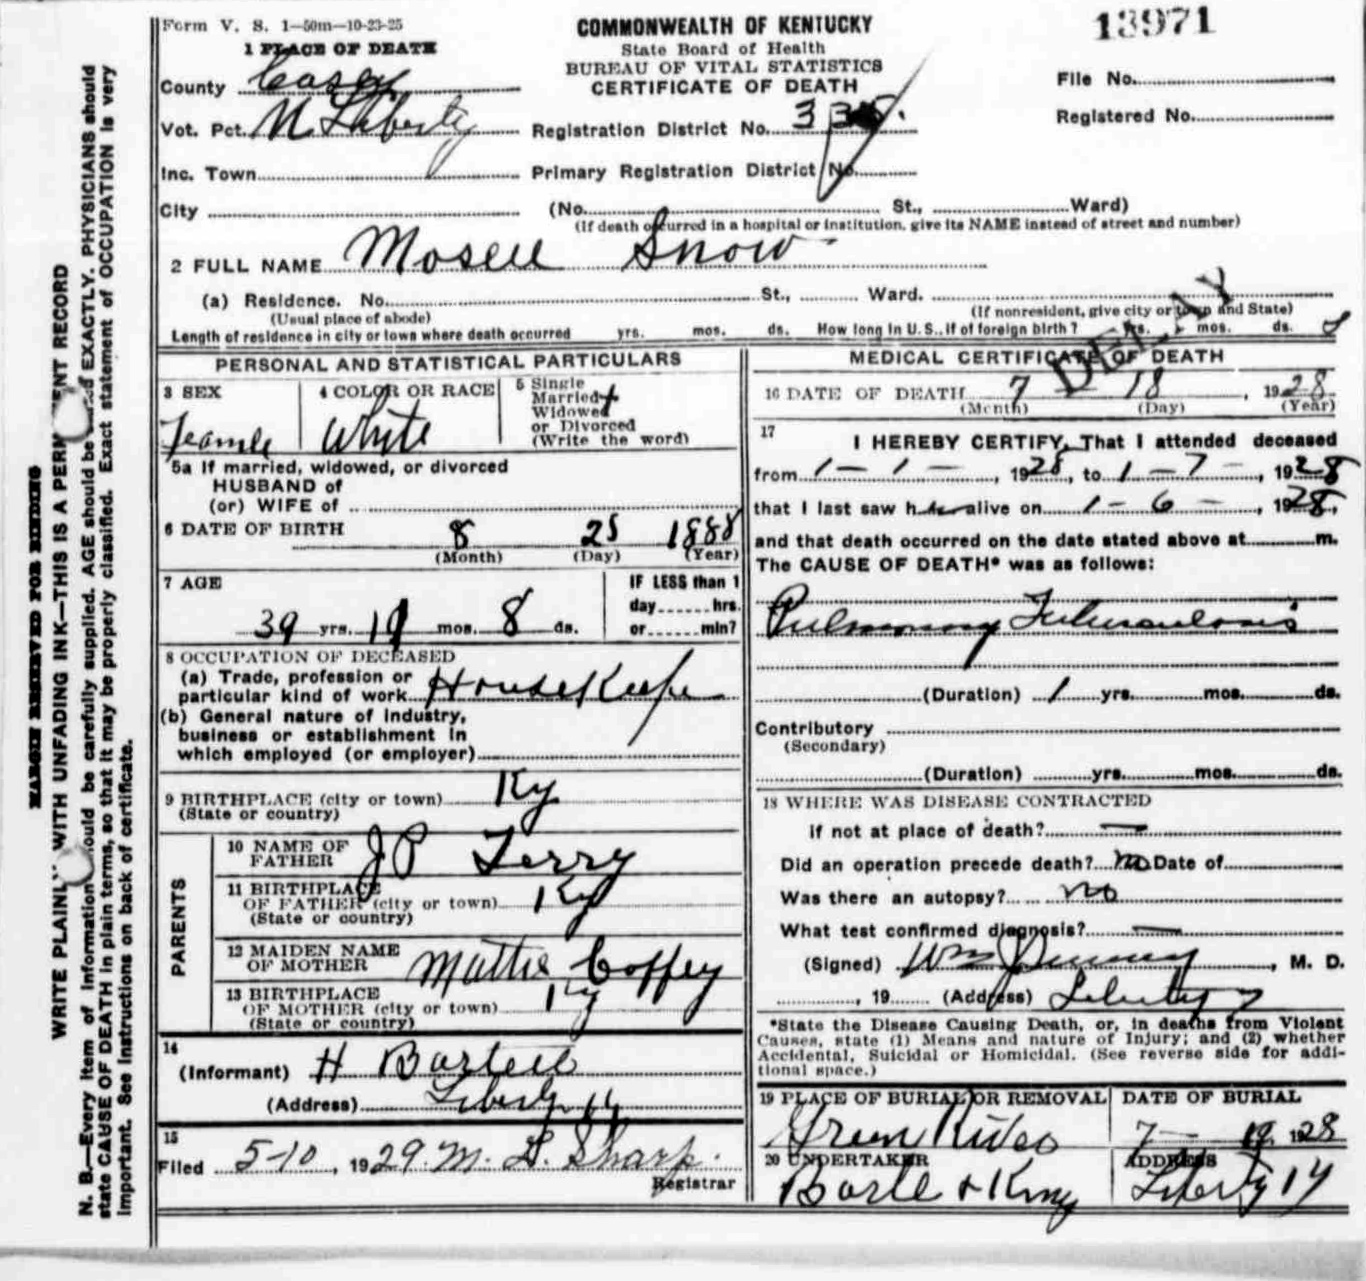 Form V. S. 1—50m—10-23-25
COMMONWEALTH OF KENTUCKY
State Board of Health
BUREAU OF VITAL STATISTICS
CERTIFICATE OF DEATH
13971
File No.
Registered No.
1 PLACE OF DEATH
County Casey
Vot. Pct. N Liberty
Registration District No. 335.
Inc. Town
Primary Registration District No.
City
(No. St., Ward)
(If death occurred in a hospital or institution, give its NAME instead of street and number)
2 FULL NAME Mosell Snow
(a) Residence. No. St., Ward.
(Usual place of abode)
(If nonresident, give city or town and State)
Length of residence in city or town where death occurred yrs. mos. ds. How long in U.S., if of foreign birth? yrs. mos. ds.
DELAY
PERSONAL AND STATISTICAL PARTICULARS
3 SEX
Feamle
4 COLOR OR RACE
White
5 Single
Married
Widowed
or Divorced
(Write the word)
5a If married, widowed, or divorced
HUSBAND of
(or) WIFE of
6 DATE OF BIRTH 8 25 1888
(Month) (Day) (Year)
7 AGE
39 yrs. 10 mos. 8 ds.
IF LESS than 1
day hrs.
or min?
8 OCCUPATION OF DECEASED
(a) Trade, profession or
particular kind of work HouseKeepe
(b) General nature of Industry,
business or establishment in
which employed (or employer)
9 BIRTHPLACE (city or town) Ky
(State or country)
PARENTS
10 NAME OF
FATHER J P Terry
11 BIRTHPLACE
OF FATHER (city or town) Ky
(State or country)
12 MAIDEN NAME
OF MOTHER Mattie Coffey
13 BIRTHPLACE
OF MOTHER (city or town) Ky
(State or country)
14
(Informant) H Bartell
(Address) Liberty Ky
15
Filed 5-10, 1929 M. L. Sharp.
Registrar
MEDICAL CERTIFICATE OF DEATH
16 DATE OF DEATH 7 18, 1928
(Month) (Day) (Year)
17
I HEREBY CERTIFY, That I attended deceased
from 1 — 1 —, 1928, to 1 — 7 —, 1928
that I last saw her alive on 1 — 6 —, 1928,
and that death occurred on the date stated above at m.
The CAUSE OF DEATH* was as follows:
Pulmonary Tuberculosis
(Duration) 1 yrs. mos. ds.
Contributory
(Secondary)
(Duration) yrs. mos. ds.
18 WHERE WAS DISEASE CONTRACTED
if not at place of death? —
Did an operation precede death? no Date of
Was there an autopsy? no
What test confirmed diagnosis? —
(Signed) Wm J Sweeney, M. D.
, 19 (Address) Liberty
*State the Disease Causing Death, or, in deaths from Violent
Causes, state (1) Means and nature of Injury; and (2) whether
Accidental, Suicidal or Homicidal. (See reverse side for addi-
tional space.)
19 PLACE OF BURIAL OR REMOVAL
Green River
DATE OF BURIAL
7 — 19, 1928
20 UNDERTAKER
Bartle & King
ADDRESS
Liberty Ky
MARGIN RESERVED FOR BINDING
WRITE PLAINLY WITH UNFADING INK—THIS IS A PERMANENT RECORD
N. B.—Every item of information should be carefully supplied. AGE should be stated EXACTLY. PHYSICIANS should
state CAUSE OF DEATH in plain terms, so that it may be properly classified. Exact statement of OCCUPATION is very
important. See instructions on back of certificate.